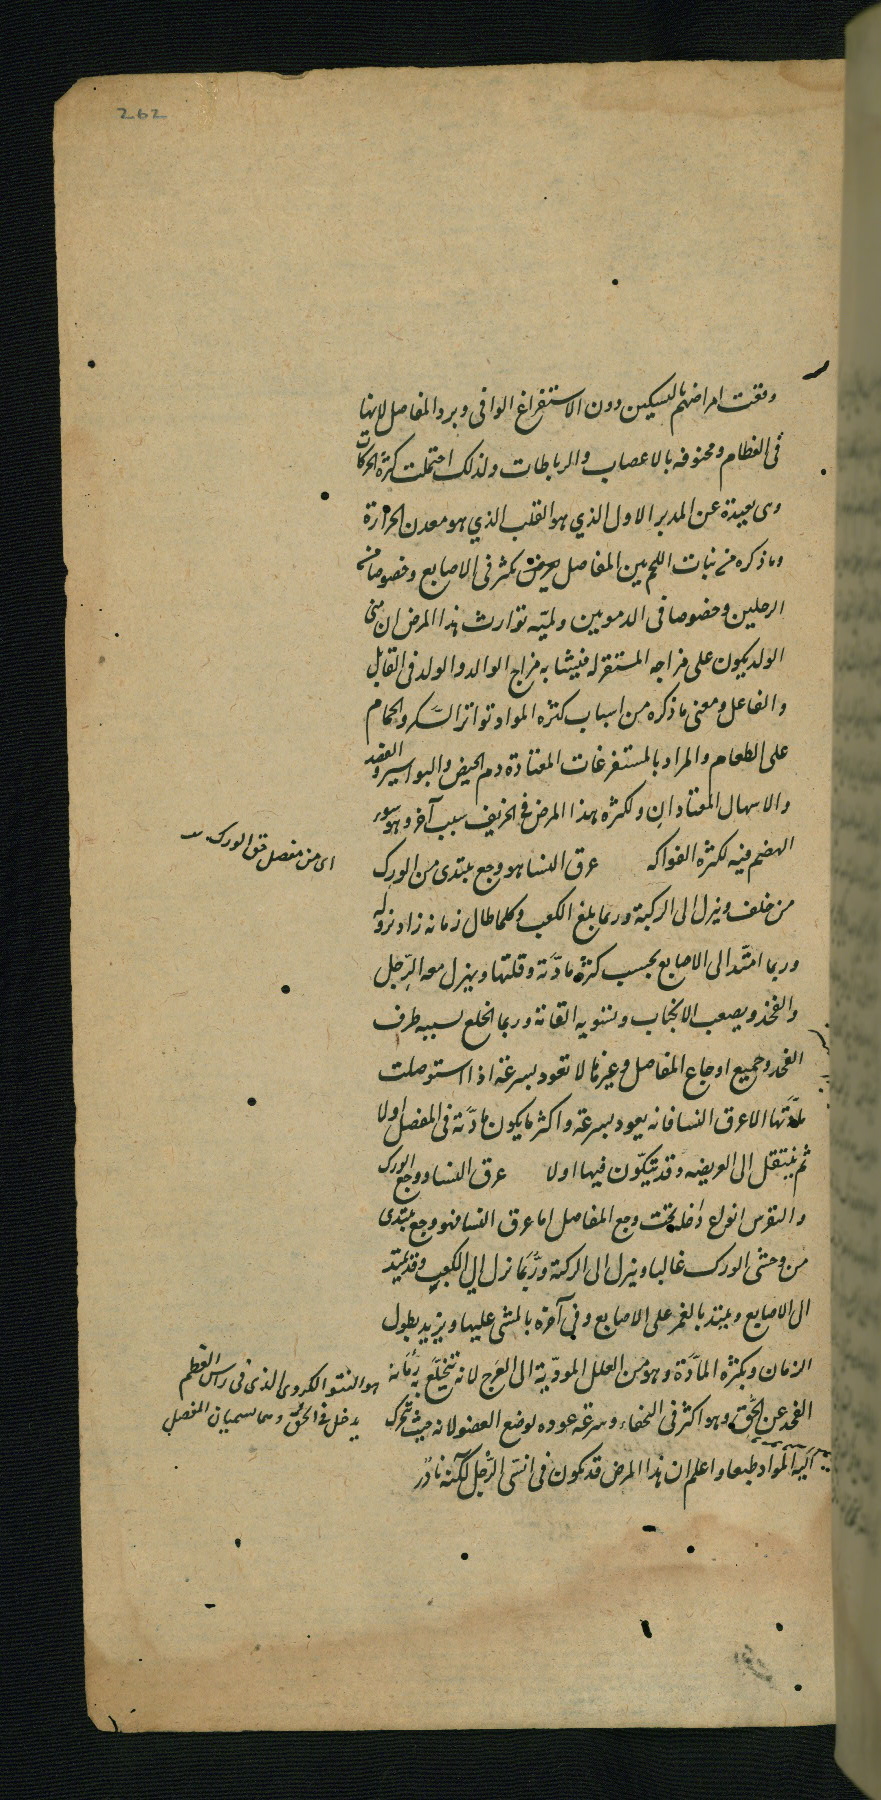 262
وقعت امراضهم بالتسكين دون الاستفراغ الوافى وبرد المفاصل لانها
فى العظام ومحفوفه بالاعصاب والرباطات ولذلك احتملت كثرة الحركات
وهى بعيدة عن المدبر الاول الذي هو القلب الذي هو معدن الحرارة
وما ذكره من نبات اللحم بين المفاصل يعرض بكثر فى الاصابع وخصوصا من
الرجلين وخصوصا فى الدمويين ولميّه توارث هذا المرض ان منى
الولد يكون على مزاجه المستقر له فيتشابه مزاج الوالد والولد فى القابل
والفاعل ومعنى ما ذكره من اسباب كثرة المواد تواتر السكر والحمام
على الطعام والمراد بالمستفرغات المعتادة دم الحيض والبواسير والفصد
والاسهال المعتادان ولكثرة هذا المرض فى الخريف سبب آخر وهو سوء
الهضم فيه لكثرة الفواكه عرق النسا هو وجع يبتدى من الورك
اى من مفصل حق الورك
من خلف وينزل الى الركبة وربما بلغ الكعب وكلما طال زمانه زاد نزوله
وربما امتدّ الى الاصابع بحسب كثرة مادّته وقلتها ويهزل معه الرّجل
والفخذ ويصعب الانكباب وتسوية القامة وربما انخلع بسببه طرف
الفخذ وجميع اوجاع المفاصل وغيرها لا تعود بسرعة اذا استوصلت
مادّتها الا عرق النسا فانه يعود بسرعة واكثر ما يكون مادّته فى المفصل اولا
ثم ينتقل الى العريضه وقد يتكون فيها اولا عرق النسا ووجع الورك
والنقرس انواع داخله تحت وجع المفاصل اما عرق النسا فهو وجع يبتدى
من وحشى الورك غالبا وينزل الى الركبة وربّما نزل الى الكعب وقد يمتد
الى الاصابع ويبتد بالغمز على الاصابع وفى آخره بالمشى عليها ويزيد بطول
الزمان وبكثرة المادّة وهو من العلل المودّية الى العرج لانه تنخلّع به رُمّانة
هو النتو الكروى الذى فى راس العظم
يدخل فى الحق وهما يسميان المفصل
الفخذ عن الحُق وهو اكثر فى النحفاء وسرعة عوده لوضع العضو لانه حيث تتحرك
اليه المواد طبعا واعلم ان هذا المرض قد يكون فى انسّى الرّجل لكنّه نادر